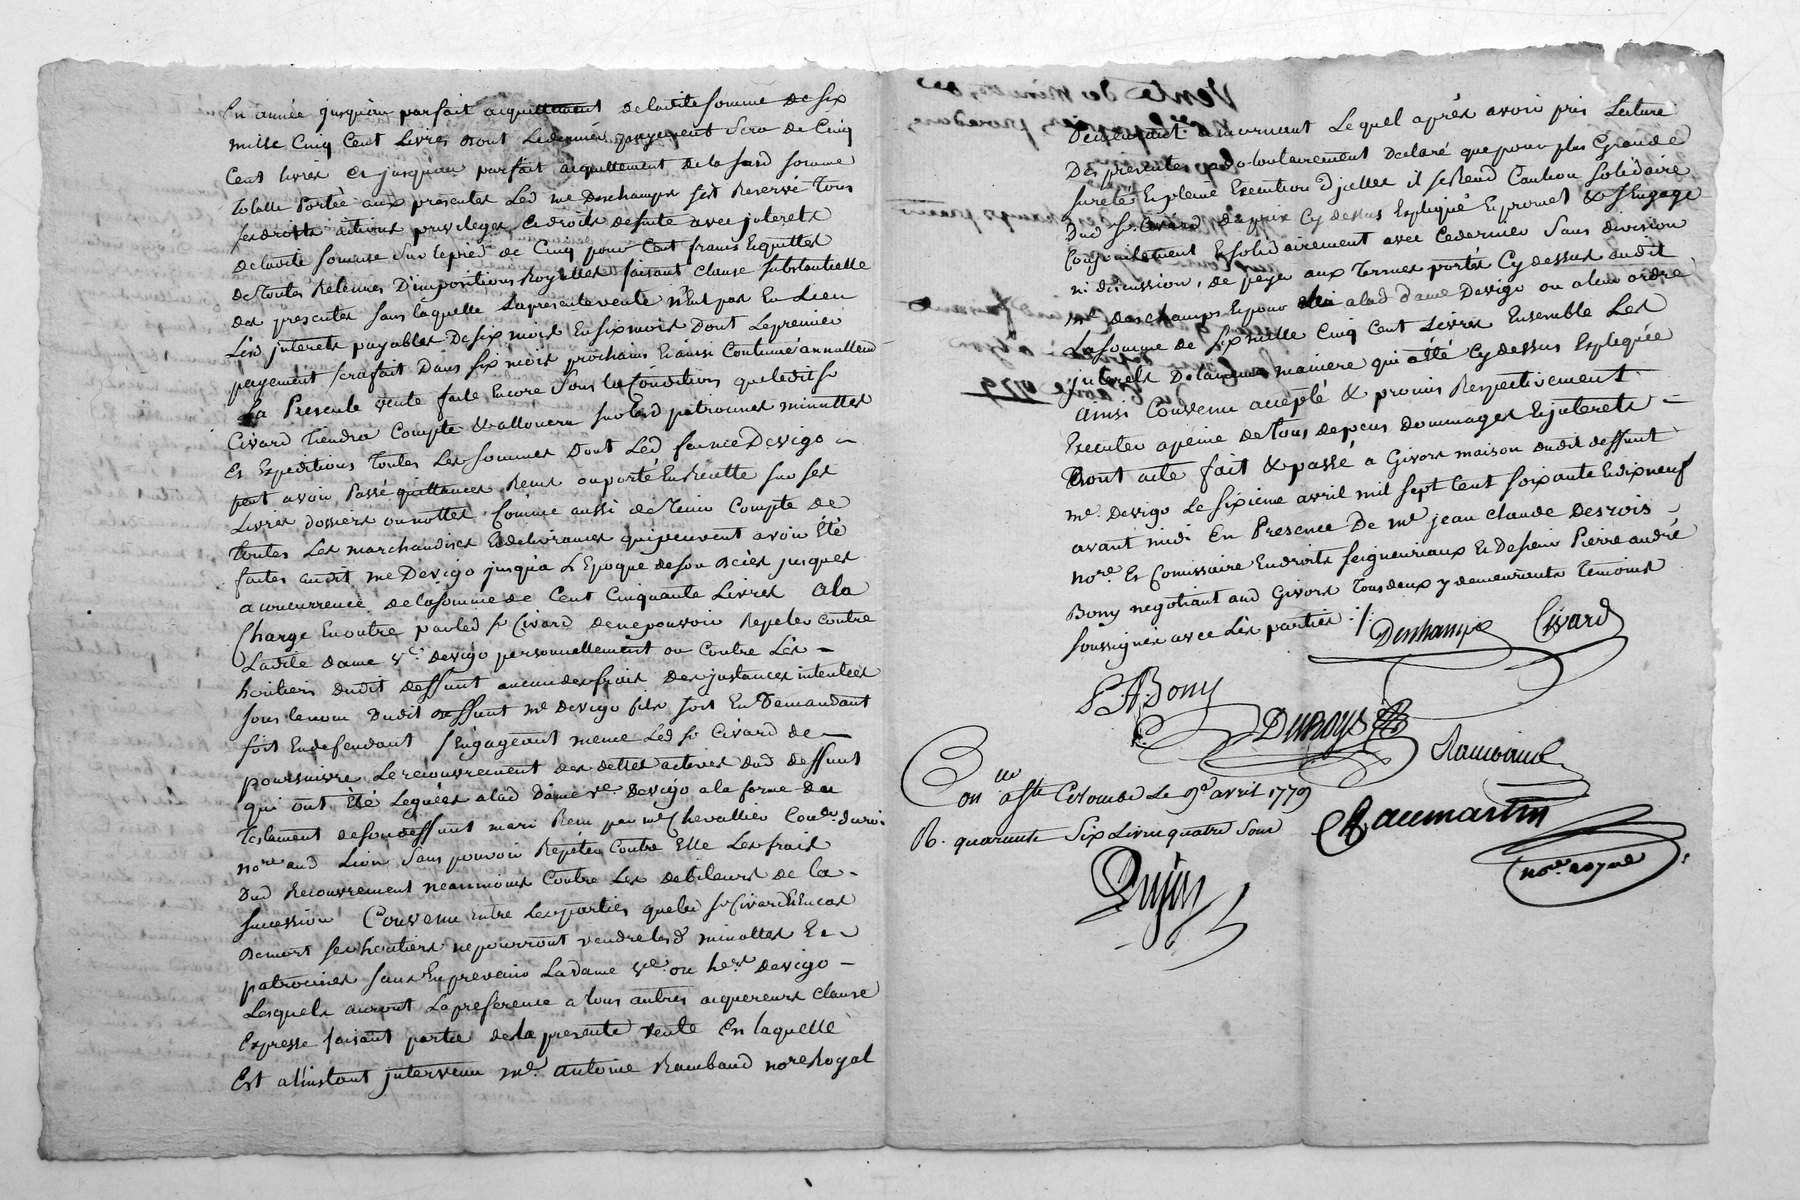 En année jusqu'au parfait acquittement de ladite somme de six
mille Cinq Cent Livres dont Le dernier payement Sera de Cinq
Cent livres et jusqu'au parfait acquittement de la susd somme
totalle Portée aux présentes Led me Deschamps s'est Reservé Tous
ses droits actions privileges et droits de suite avec jnterets
de ladite somme Sur le pied de Cinq pour Cent francs Equittes
de toutes Retenues D'impositions Royalles faisant clause substantielle
des presentes sans laquelle La presente vente n'Eut pas Eu Lieu
Les jnterets payables De six mois En six mois Dont Le premier
payement sera fait Dans Six mois prochains Et ainsi Continué annuellemt
La Presente vente faite Encore Sous les Conditions que ledit sr
Civard Tiendra Compte & allouera sur lesd patrocines minuttes
Et Expeditions Toutes Les sommes Dont Led feu me Devigo
peut avoir Passé quittances Reçus ou porté En Recette sur ses
Livres dossiers ou nottes Comme aussi de Tenir Compte de
Toutes Les marchandises Et delivrances qui peuvent avoir Eté
faites audit me Devigo jusqu'à L'Epoque de son deces jusques
a concurrence de la somme de Cent Cinquante Livres a la
Charge En outre par led sr Civard de ne pouvoir Repeter contre
Ladite dame ve. devigo personnellement ou Contre Les
heritiers dudit deffunt aucun des frais des jnstances intentées
sous le nom dudit deffunt me devigo fils soit En Demandant
soit En defendant s'Engageant meme Led sr Civard de
poursuivre Le recouvrement des dettes actives dud deffunt
qui ont Eté Leguées a lad dame ve devigo a la forme du
Testament de son deffunt mari Reçu par me Chevallier Coner du roi
nore aud Lion Sans pouvoir Repeter Contre Elle Les frais
dud Recouvrement neanmoins Contre Les debiteurs de la
succession Convenu Entre Les parties que led sr Civard En cas
de mort ses heritiers ne pourront vendre lesd minuttes Et
patrocines sans En prevenir La dame ve. ou hers devigo
Lesquels auront La preference a tous autres acquereurs clause
Expresse faisant partie de la presente vente En laquelle
Est a l'instant jntervenu me. antoine Rambaud nore Royal
demeurant a mornant Lequel après avoir pris Lecture
Des presentes a volontairement Declaré que pour plus Grande
sureté En pleine Execution d'jcelles il se Rend Caution Solidaire
Dud sr. Civard du prix Cy dessus Expliqué Et promet & s'Engage
Conjointement Et solidairement avec Ce dernier Sans division
ni discussion, de payer aux Termes portés Cy dessus audit
me. deschamps Et pour lui a lad dame Devigo ou a leur ordre
La somme de Six mille Cinq Cent Livres Ensemble Les
jnterets De la meme maniere qui a été Cy dessus Expliquée
ainsi Convenu accepté & promis Respectivement
Executer a peine de Tous depens dommages Et jnterets
Dont acte fait & passé a Givors maison dudit deffunt
me. Devigo Le sixieme avril mil sept Cent soixante et dix neuf
avant midi En Presence De me jean Claude Desrois
nore. Et Commissaire En droits seigneuriaux Et De sieur Pierre andré
Bony negotiant aud Givors Tous deux y demeurants Temoins
soussignés avec Les parties ./.
Deschamps Civard
P. A Bony
DUROYS
Rambaud
Conlle a Ste Colombe Le 9e avril 1779
R. quarante Six Livres quatre sous
Dujas
nore royal